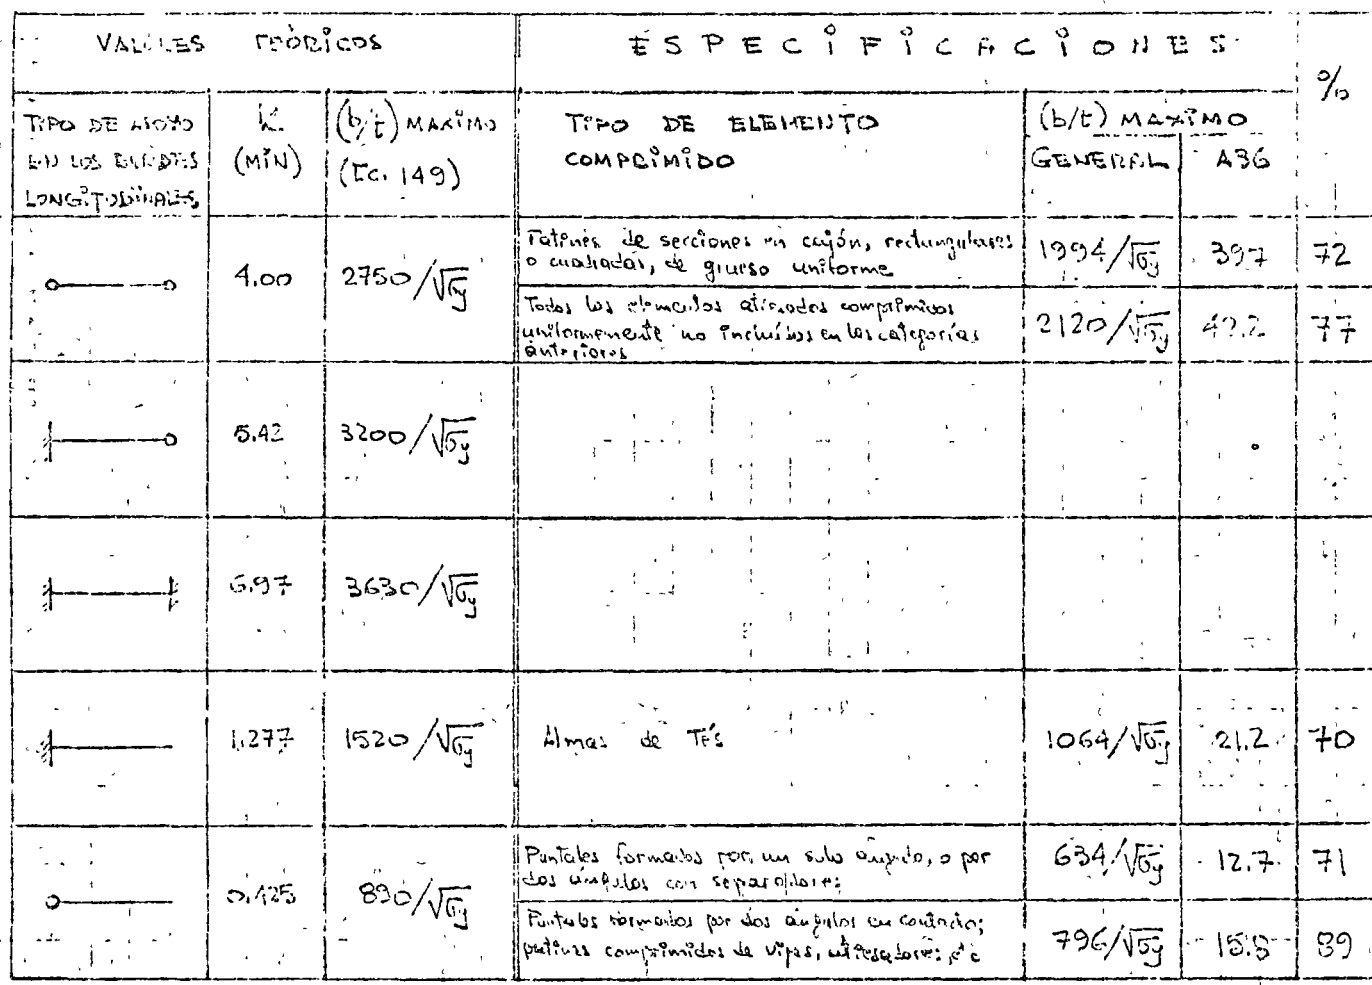 VALORES TEÓRICOS
ESPECIFICACIONES
%
TIPO DE APOYO
EN LOS BORDES
LONGITUDINALES
K
(MÍN)
(b/t) MAXIMO
(Ec. 149)
TIPO DE ELEMENTO
COMPRIMIDO
(b/t) MAXIMO
GENERAL
A36
4.00
2750/√σy
Patines de secciones en cajón, rectangulares
o cuadradas, de grueso uniforme
1994/√σy
39.7
72
Todos los elementos atiesados comprimidos
uniformemente no incluídos en las categorías
anteriores
2120/√σy
42.2
77
5.42
3200/√σy
6.97
3630/√σy
1.277
1520/√σy
Almas de TÉS
1064/√σy
21.2
70
0.425
890/√σy
Puntales formados por un solo ángulo, o por
dos ángulos con separadores
634/√σy
12.7
71
Puntales formados por dos ángulos en contacto;
patines comprimidos de vigas, atiesadores, etc
796/√σy
15.8
89